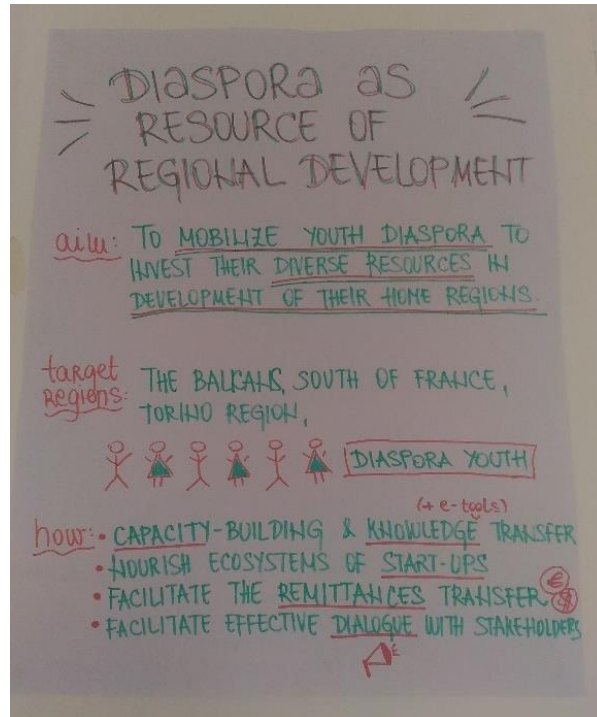 DIASPORA AS
RESOURCE OF
REGIONAL DEVELOPMENT
aim: TO MOBILIZE YOUTH DIASPORA TO
INVEST THEIR DIVERSE RESOURCES IN
DEVELOPMENT OF THEIR HOME REGIONS.
target THE BALKANS, SOUTH OF FRANCE,
REGIONS: TORINO REGION,
DIASPORA YOUTH
(+ e-tools)
how: • CAPACITY-BUILDING & KNOWLEDGE TRANSFER
• NOURISH ECOSYSTEMS OF START-UPS
• FACILITATE THE REMITTANCES TRANSFER € $
• FACILITATE EFFECTIVE DIALOGUE WITH STAKEHOLDERS